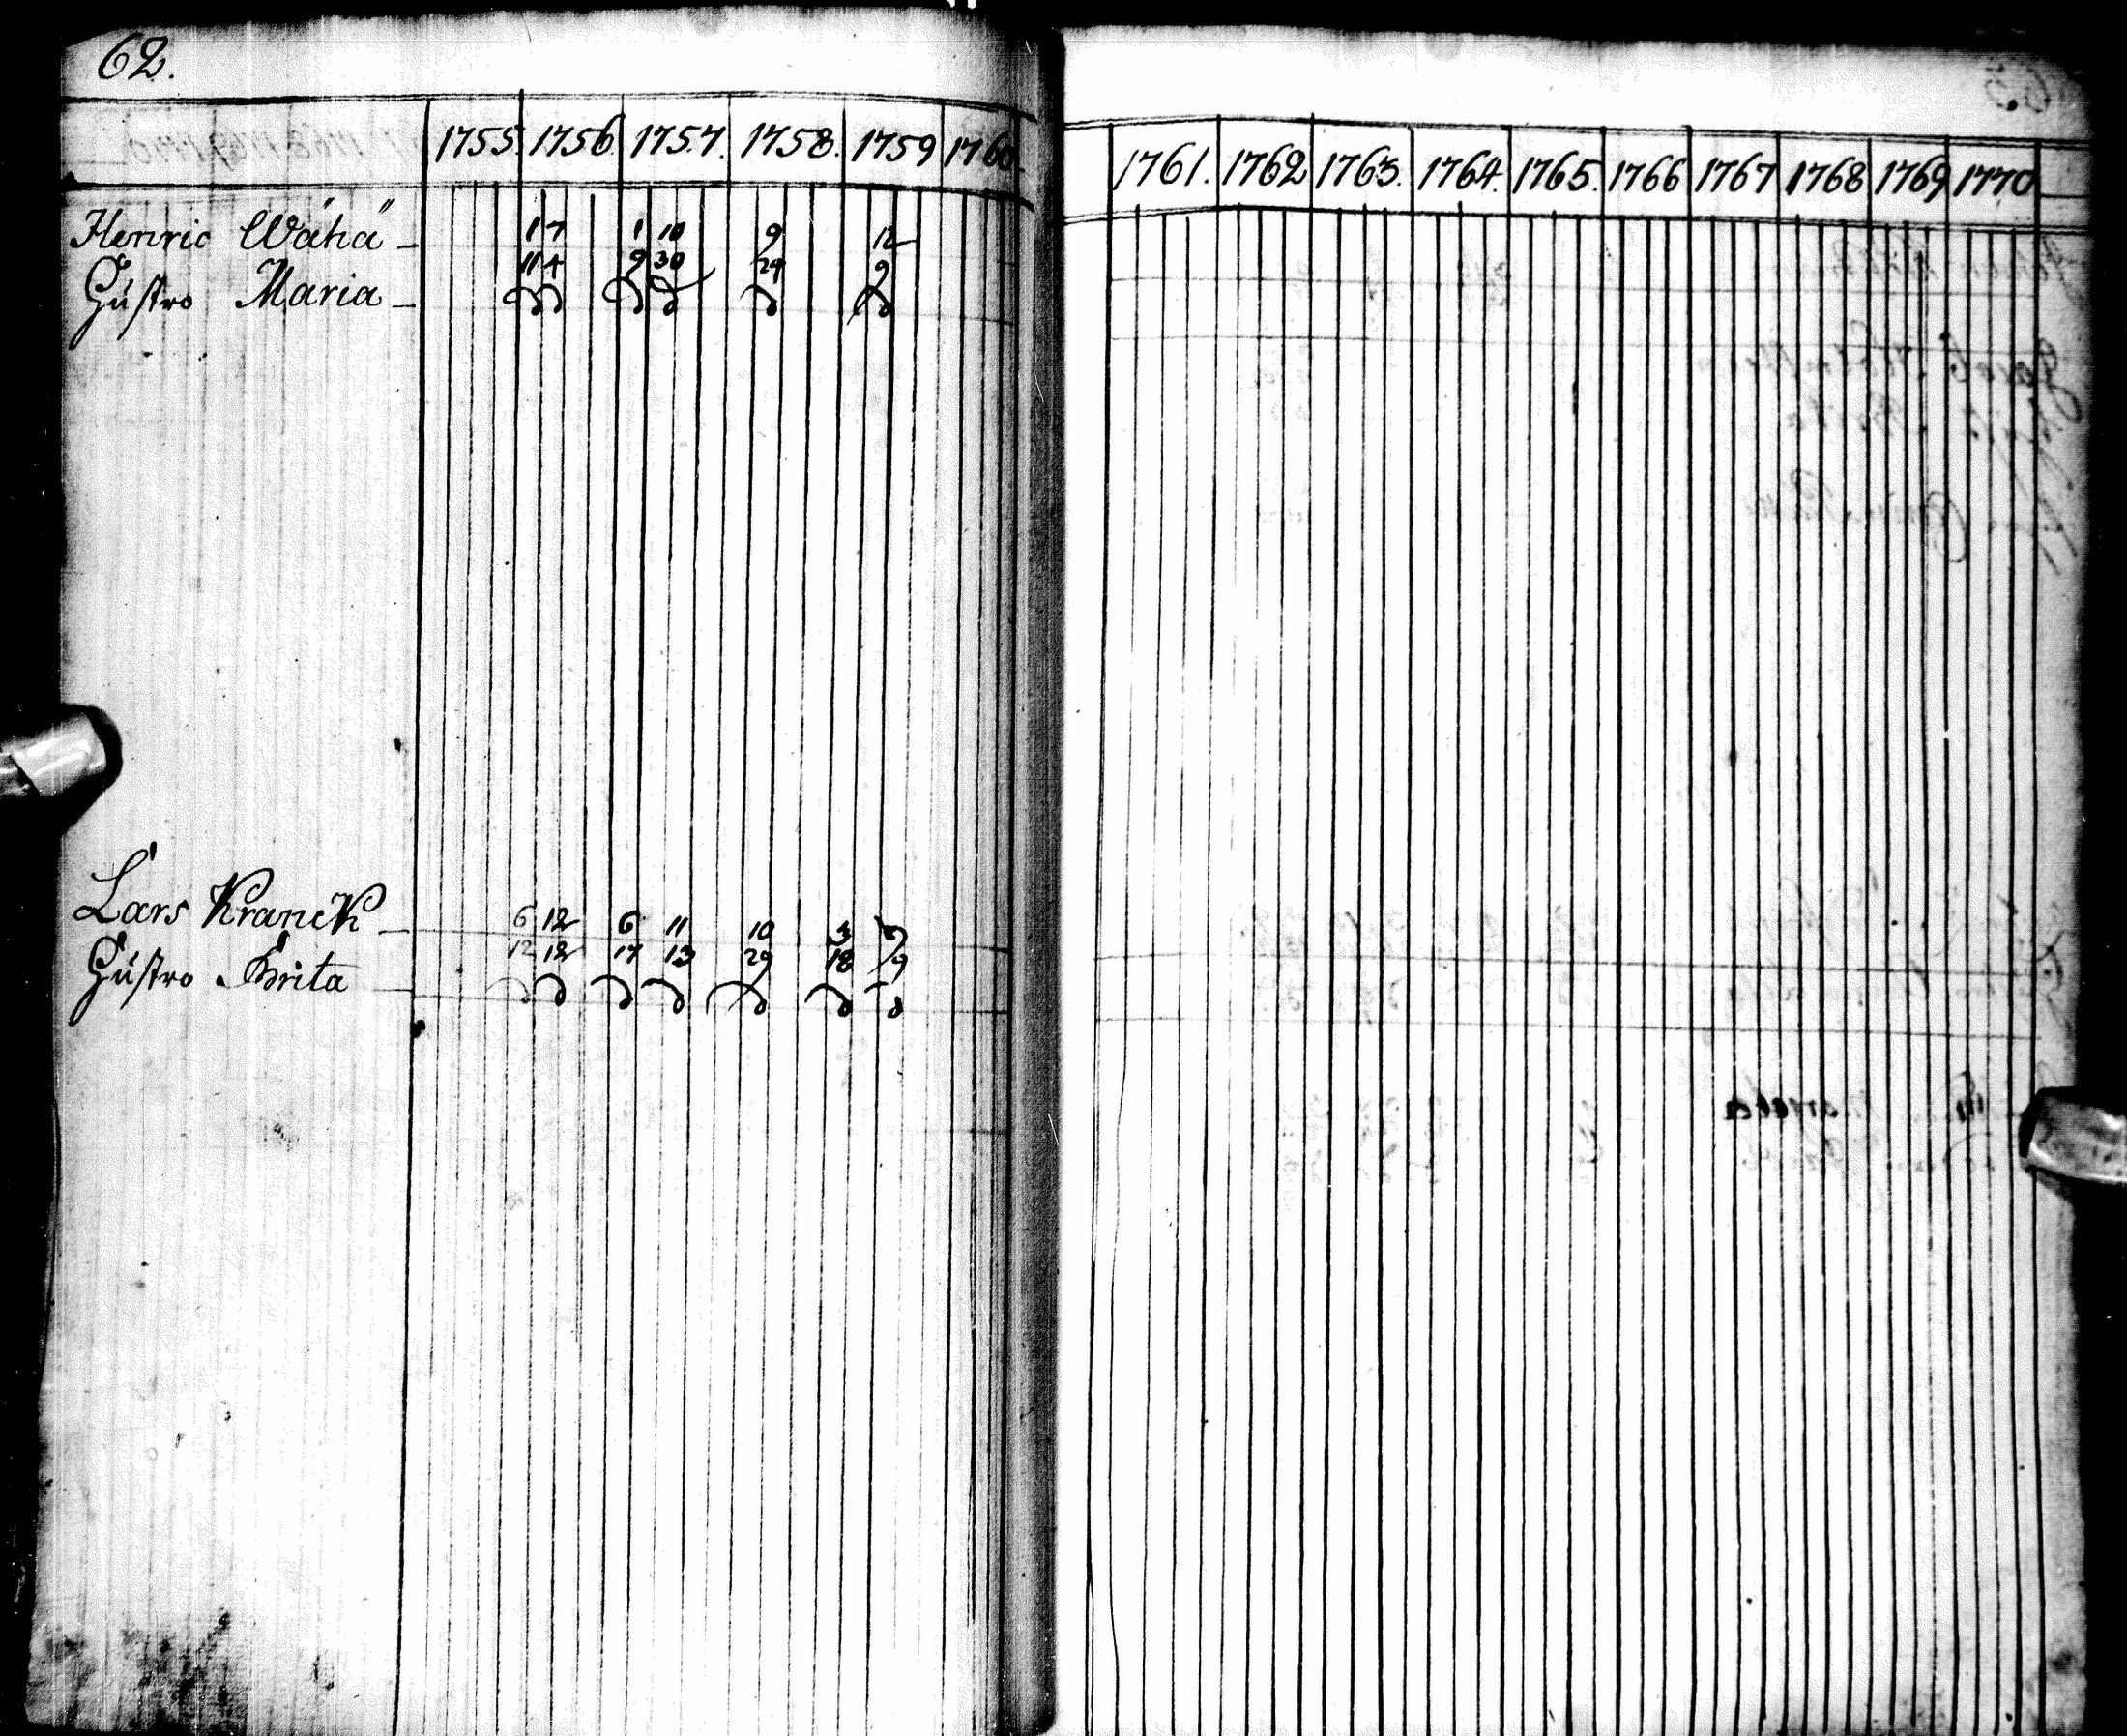 62.
1755. 1756. 1757. 1758. 1759 1760. 1761. 1762 1763. 1764. 1765. 1766 1767 1768 1769 1770
Henric Wähä 1 7 1 10 9 12
11 4 9 30 29 9
Hustro Maria
Lars Kranck 6 12 6 11 10 3 9
12 12 17 13 29 18 9
Hustro Brita